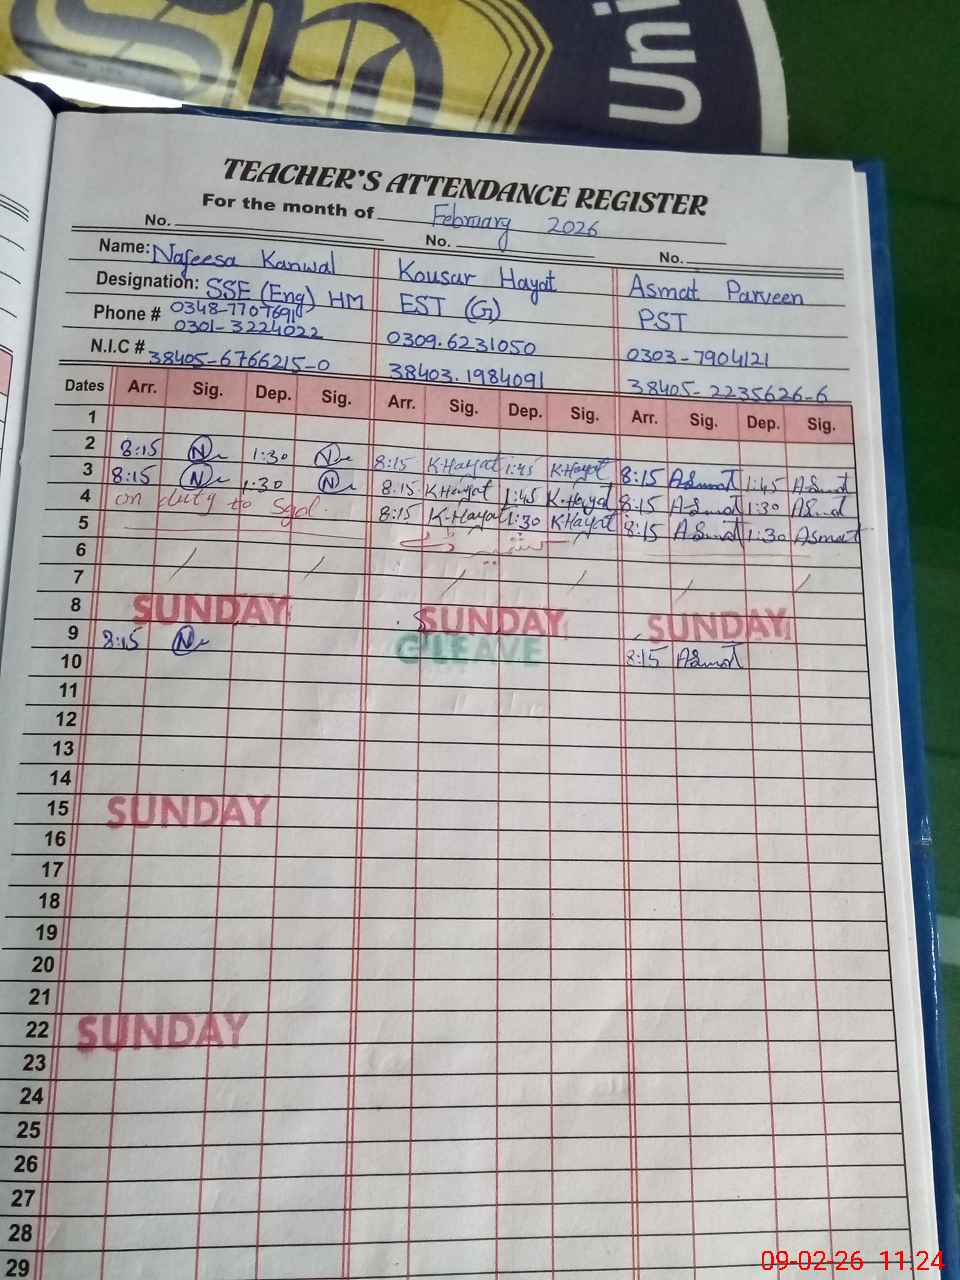 Uni
TEACHER'S ATTENDANCE REGISTER
For the month of February 2026
No. No. No.
Name: Nafeesa Kanwal Kousar Hayat Asmat Parveen
Designation: SSE (Eng) HM EST (G) PST
Phone # 0348-7707691
0301-3224022 0309.6231050 0303-7904121
N.I.C # 38405-6766215-0 38403.1984091 38405-2235626-6
Dates Arr. Sig. Dep. Sig. Arr. Sig. Dep. Sig. Arr. Sig. Dep. Sig.
1
2 8:15 N 1:30 N 8:15 K.Hayat 1:45 K.Hayat 8:15 Asmat 1:45 Asmat
3 8:15 N 1:30 N 8:15 K.Hayat 1:45 K.Hayat 8:15 Asmat 1:30 Asmat
4 on duty to Sgd. 8:15 K.Hayat 1:30 K.Hayat 8:15 Asmat 1:30 Asmat
5
6
7
8 SUNDAY SUNDAY SUNDAY
9 8:15 N C LEAVE 8:15 Asmat
10
11
12
13
14
15 SUNDAY
16
17
18
19
20
21
22 SUNDAY
23
24
25
26
27
28
29
09-02-26 11:24